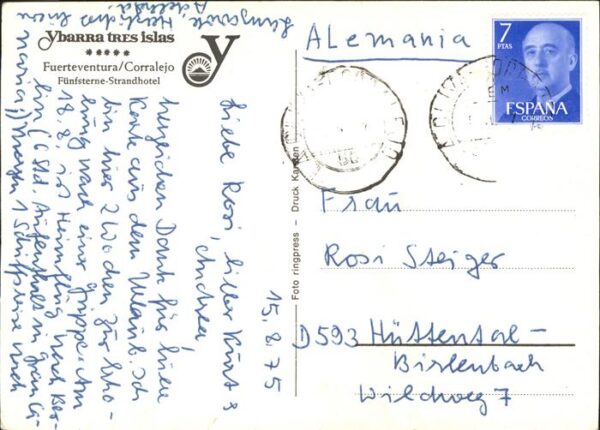 Ybarra TRES islas
*****
Fuerteventura/Corralejo
Fünfsterne-Strandhotel
15.8.75
Liebe Rosi, lieber Kurt &
Andrea,
herzlichen Dank für Eure
Karte aus dem Urlaub. Ich
bin hier 2 Wochen zur Erho-
lung nach einer Grippe. Am
18.8. ist Heimflug nach Ber-
lin (6 Std. Aufenthalt in Gran Ca-
naria). Morgen 1 Schiffsreise nach
Lanzarote. Herzliches
Foto ringpress - Druck
Alemania
7
PTAS
ESPAÑA
CORREOS
Frau
Rosi Steiger
D593 Hüttental-
Birlenbach
Wildweg 7